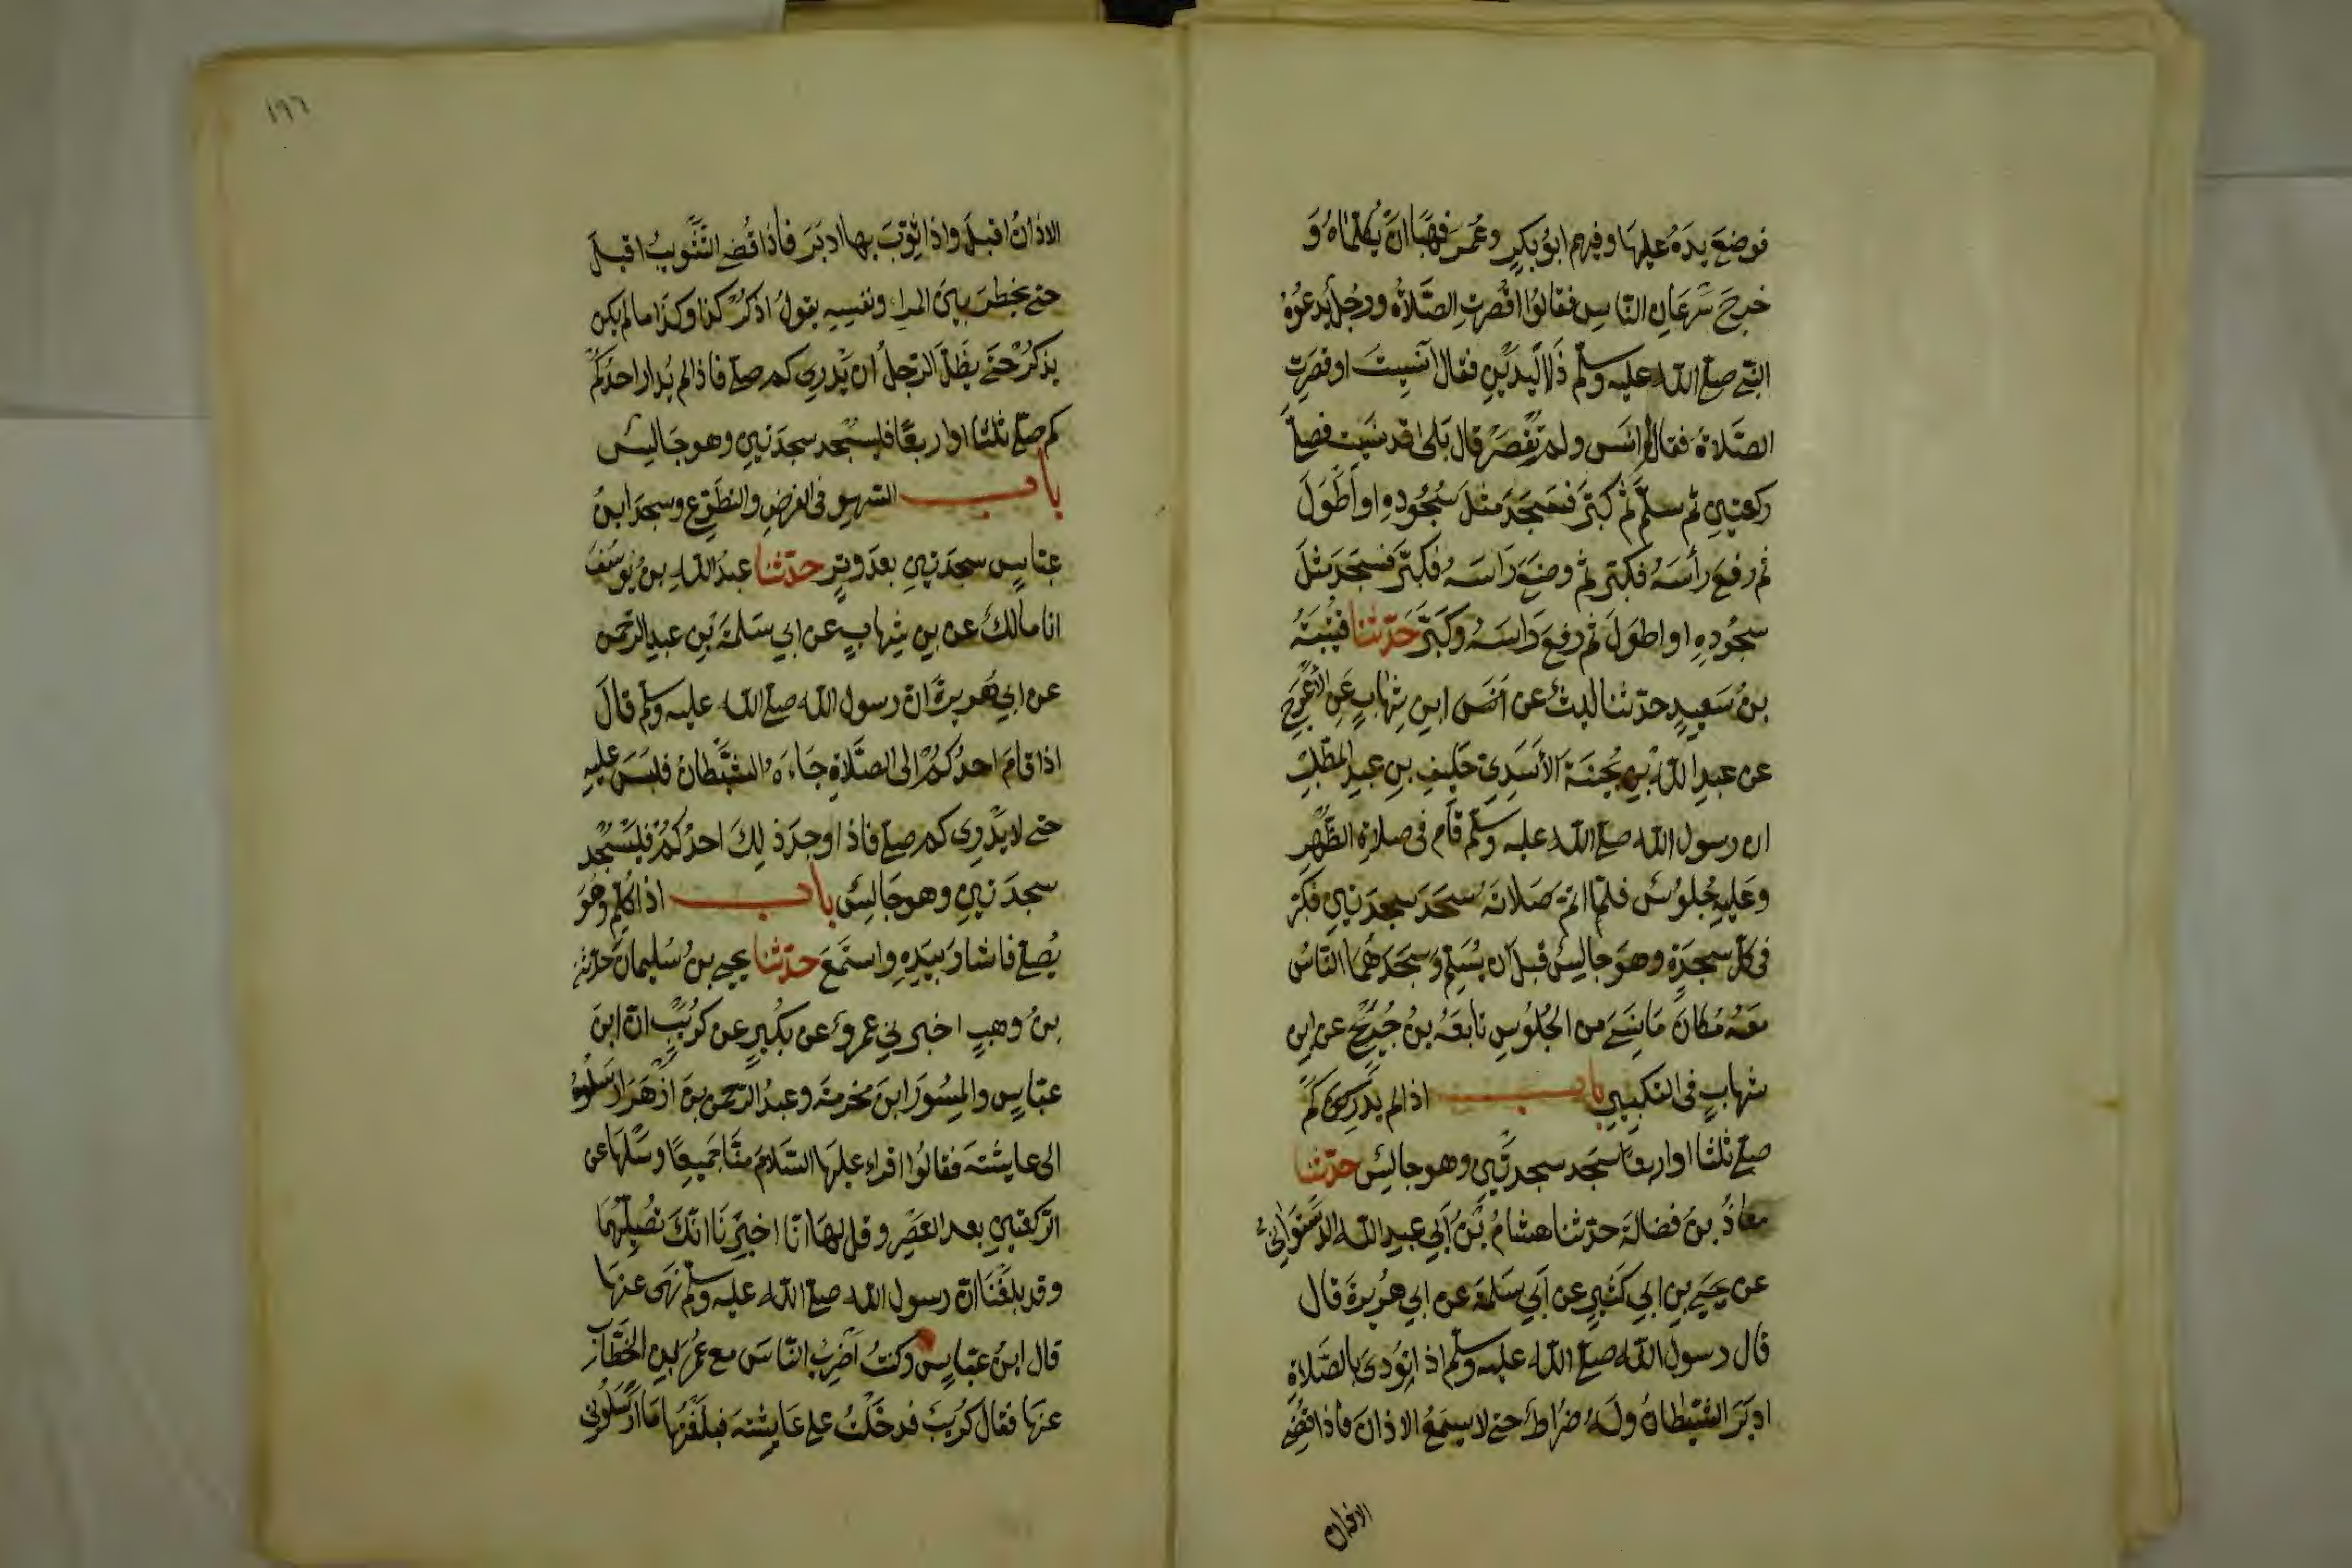 فوضع يده عليها وفيهم ابو بكر وعمر فهابا ان يكلماه و
خرج سرعان الناس فقالوا اقصرت الصلاة ورجل يدعوه
النبي صلى الله عليه وسلم ذا اليدين فقال انسيت او قصرت
الصلاة فقال لم انس ولم تقصر قال بلى قد نسيت فصلى
ركعتين ثم سلم ثم كبر فسجد مثل سجوده او اطول
ثم رفع رأسه فكبر ثم وضع راسه فكبر فسجد مثل
سجوده او اطول ثم رفع راسه وكبر حدثنا قتيبة
بن سعيد حدثنا ليث عن ابن شهاب عن الأعرج
عن عبد الله بن بحينة الأسدي حليف بن عبد المطلب
ان رسول الله صلى الله عليه وسلم قام في صلاة الظهر
وعليه جلوس فلما اتم صلاته سجد سجدتين فكبر
في كل سجدة وهو جالس قبل ان يسلم وسجدهما الناس
معه مكان ما نسي من الجلوس تابعه بن جريج عن ابن
شهاب في التكبير باب اذا لم يدر كم
صلى ثلثا او اربعا سجد سجدتين وهو جالس حدثنا
معاذ بن فضالة حدثنا هشام بن أبي عبد الله الدستوائي
عن يحيى بن ابي كثير عن أبي سلمة عن ابي هريرة قال
قال رسول الله صلى الله عليه وسلم اذا نودي بالصلاة
ادبر الشيطان وله ضراط حتى لا يسمع الاذان فاذا قضي
الاذان
١٩٦
الاذان اقبل واذا ثوب بها ادبر فاذا قضي التثويب اقبل
حتى يخطر بين المرء ونفسه يقول اذكر كذا وكذا ما لم يكن
يذكر حتى يظل الرجل ان يدري كم صلى فاذا لم يدر احدكم
كم صلى ثلثا او اربعا فليسجد سجدتين وهو جالس
باب السهو في الفرض والتطوع وسجد ابن
عباس سجدتين بعد وتر حدثنا عبد الله بن يوسف
انا مالك عن بن شهاب عن ابي سلمة بن عبد الرحمن
عن ابي هريرة ان رسول الله صلى الله عليه وسلم قال
اذا قام احدكم الى الصلاة جاءه الشيطان فلبس عليه
حتى لا يدري كم صلى فاذا وجد ذلك احدكم فليسجد
سجدتين وهو جالس باب اذا كلم وهو
يصلي فاشار بيده واستمع حدثنا يحيى بن سليمان حدثني
بن وهب اخبرني عمرو عن بكير عن كريب ان ابن
عباس والمسور ابن مخرمة وعبد الرحمن بن ازهر ارسلوه
الى عايشة فقالوا اقراء عليها السلام منا جميعا وسلها عن
الركعتين بعد العصر وقل لها انا اخبرنا انك تصليهما
وقد بلغنا ان رسول الله صلى الله عليه وسلم نهى عنها
قال ابن عباس وكنت اضرب الناس مع عمر بن الخطاب
عنها فقال كريب فدخلت على عايشة فبلغتها ما ارسلوني